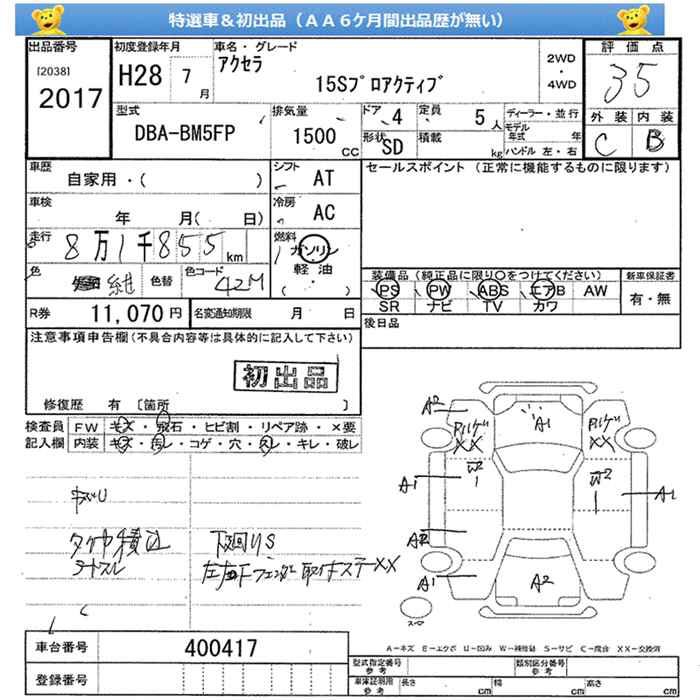 特選車＆初出品（ＡＡ６ケ月間出品歴が無い）
出品番号
[2038]
2017
初度登録年月
H28 7 月
車名・グレード
アクセラ
15Sプロアクティブ
2WD
・
4WD
評価点
35
外装 内装
C B
型式
DBA-BM5FP
排気量
1500 CC
ドア 4
定員 5 人
形状 SD
積載 kg
ディーラー・並行
モデル年式 年
ハンドル 左・右
車歴
自家用・( )
シフト AT
車検
年 月( 日)
冷房 AC
走行
8万1千855 km
燃料
ガソリン
軽油
( ・ )
色 紺
色替
色コード 42M
R券 11,070 円
名変通知期限 月 日
セールスポイント (正常に機能するものに限ります)
装備品 (純正品に限り○をつけてください)
PS PW ABS エアB AW
SR ナビ TV カワ
新車保証書
有・無
後日品
注意事項申告欄(不具合内容等は具体的に記入して下さい)
初出品
修復歴 有 〔箇所 〕
検査員記入欄
FW キズ・飛石・ヒビ割・リペア跡・×要
内装 キズ・コゲ・穴・スレ・キレ・破レ
下廻りS
A2 A1 XX XX
W2 W2
A1 A1
A2
A1 A2
A－キズ E－エクボ U－凹み W－補修跡 S－サビ C－腐食 XX－交換済
車台番号 400417
登録番号
型式指定番号 参考
類別区分番号 参考
車庫証明用 参考
長さ cm
幅 cm
高さ cm